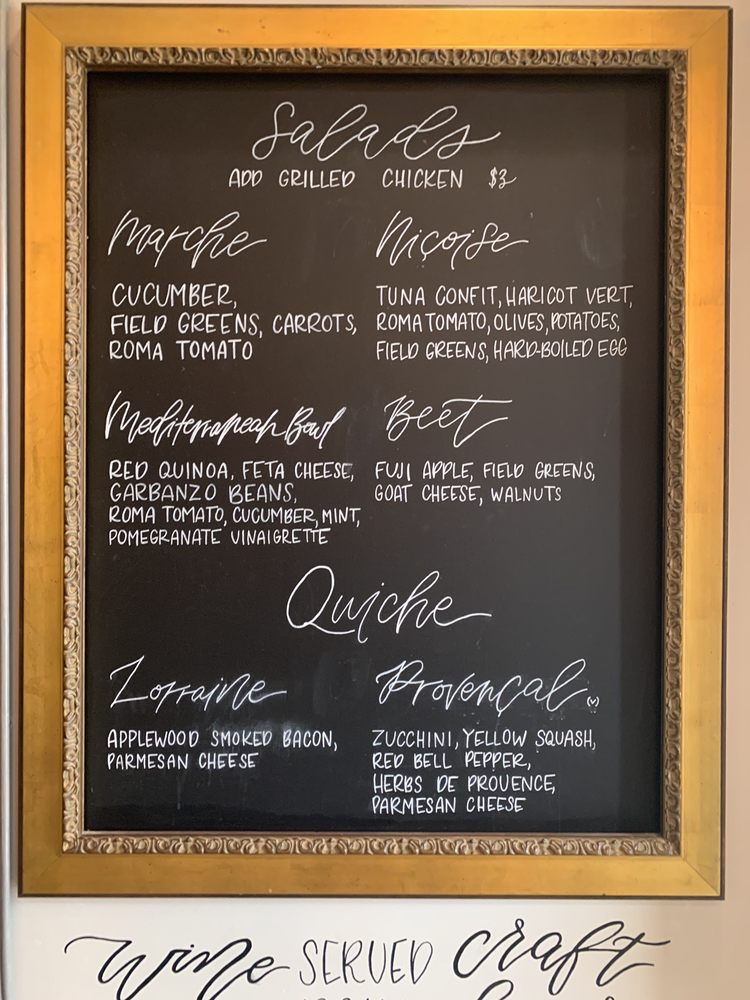 Salads
ADD GRILLED CHICKEN $3
Marche
CUCUMBER,
FIELD GREENS, CARROTS,
ROMA TOMATO
Niçoise
TUNA CONFIT, HARICOT VERT,
ROMA TOMATO, OLIVES, POTATOES,
FIELD GREENS, HARD-BOILED EGG
Mediterranean Bowl
RED QUINOA, FETA CHEESE,
GARBANZO BEANS,
ROMA TOMATO, CUCUMBER, MINT,
POMEGRANATE VINAIGRETTE
Beet
FUJI APPLE, FIELD GREENS,
GOAT CHEESE, WALNUTS
Quiche
Lorraine
APPLEWOOD SMOKED BACON,
PARMESAN CHEESE
Provençal (v)
ZUCCHINI, YELLOW SQUASH,
RED BELL PEPPER,
HERBS DE PROVENCE,
PARMESAN CHEESE
wine SERVED craft